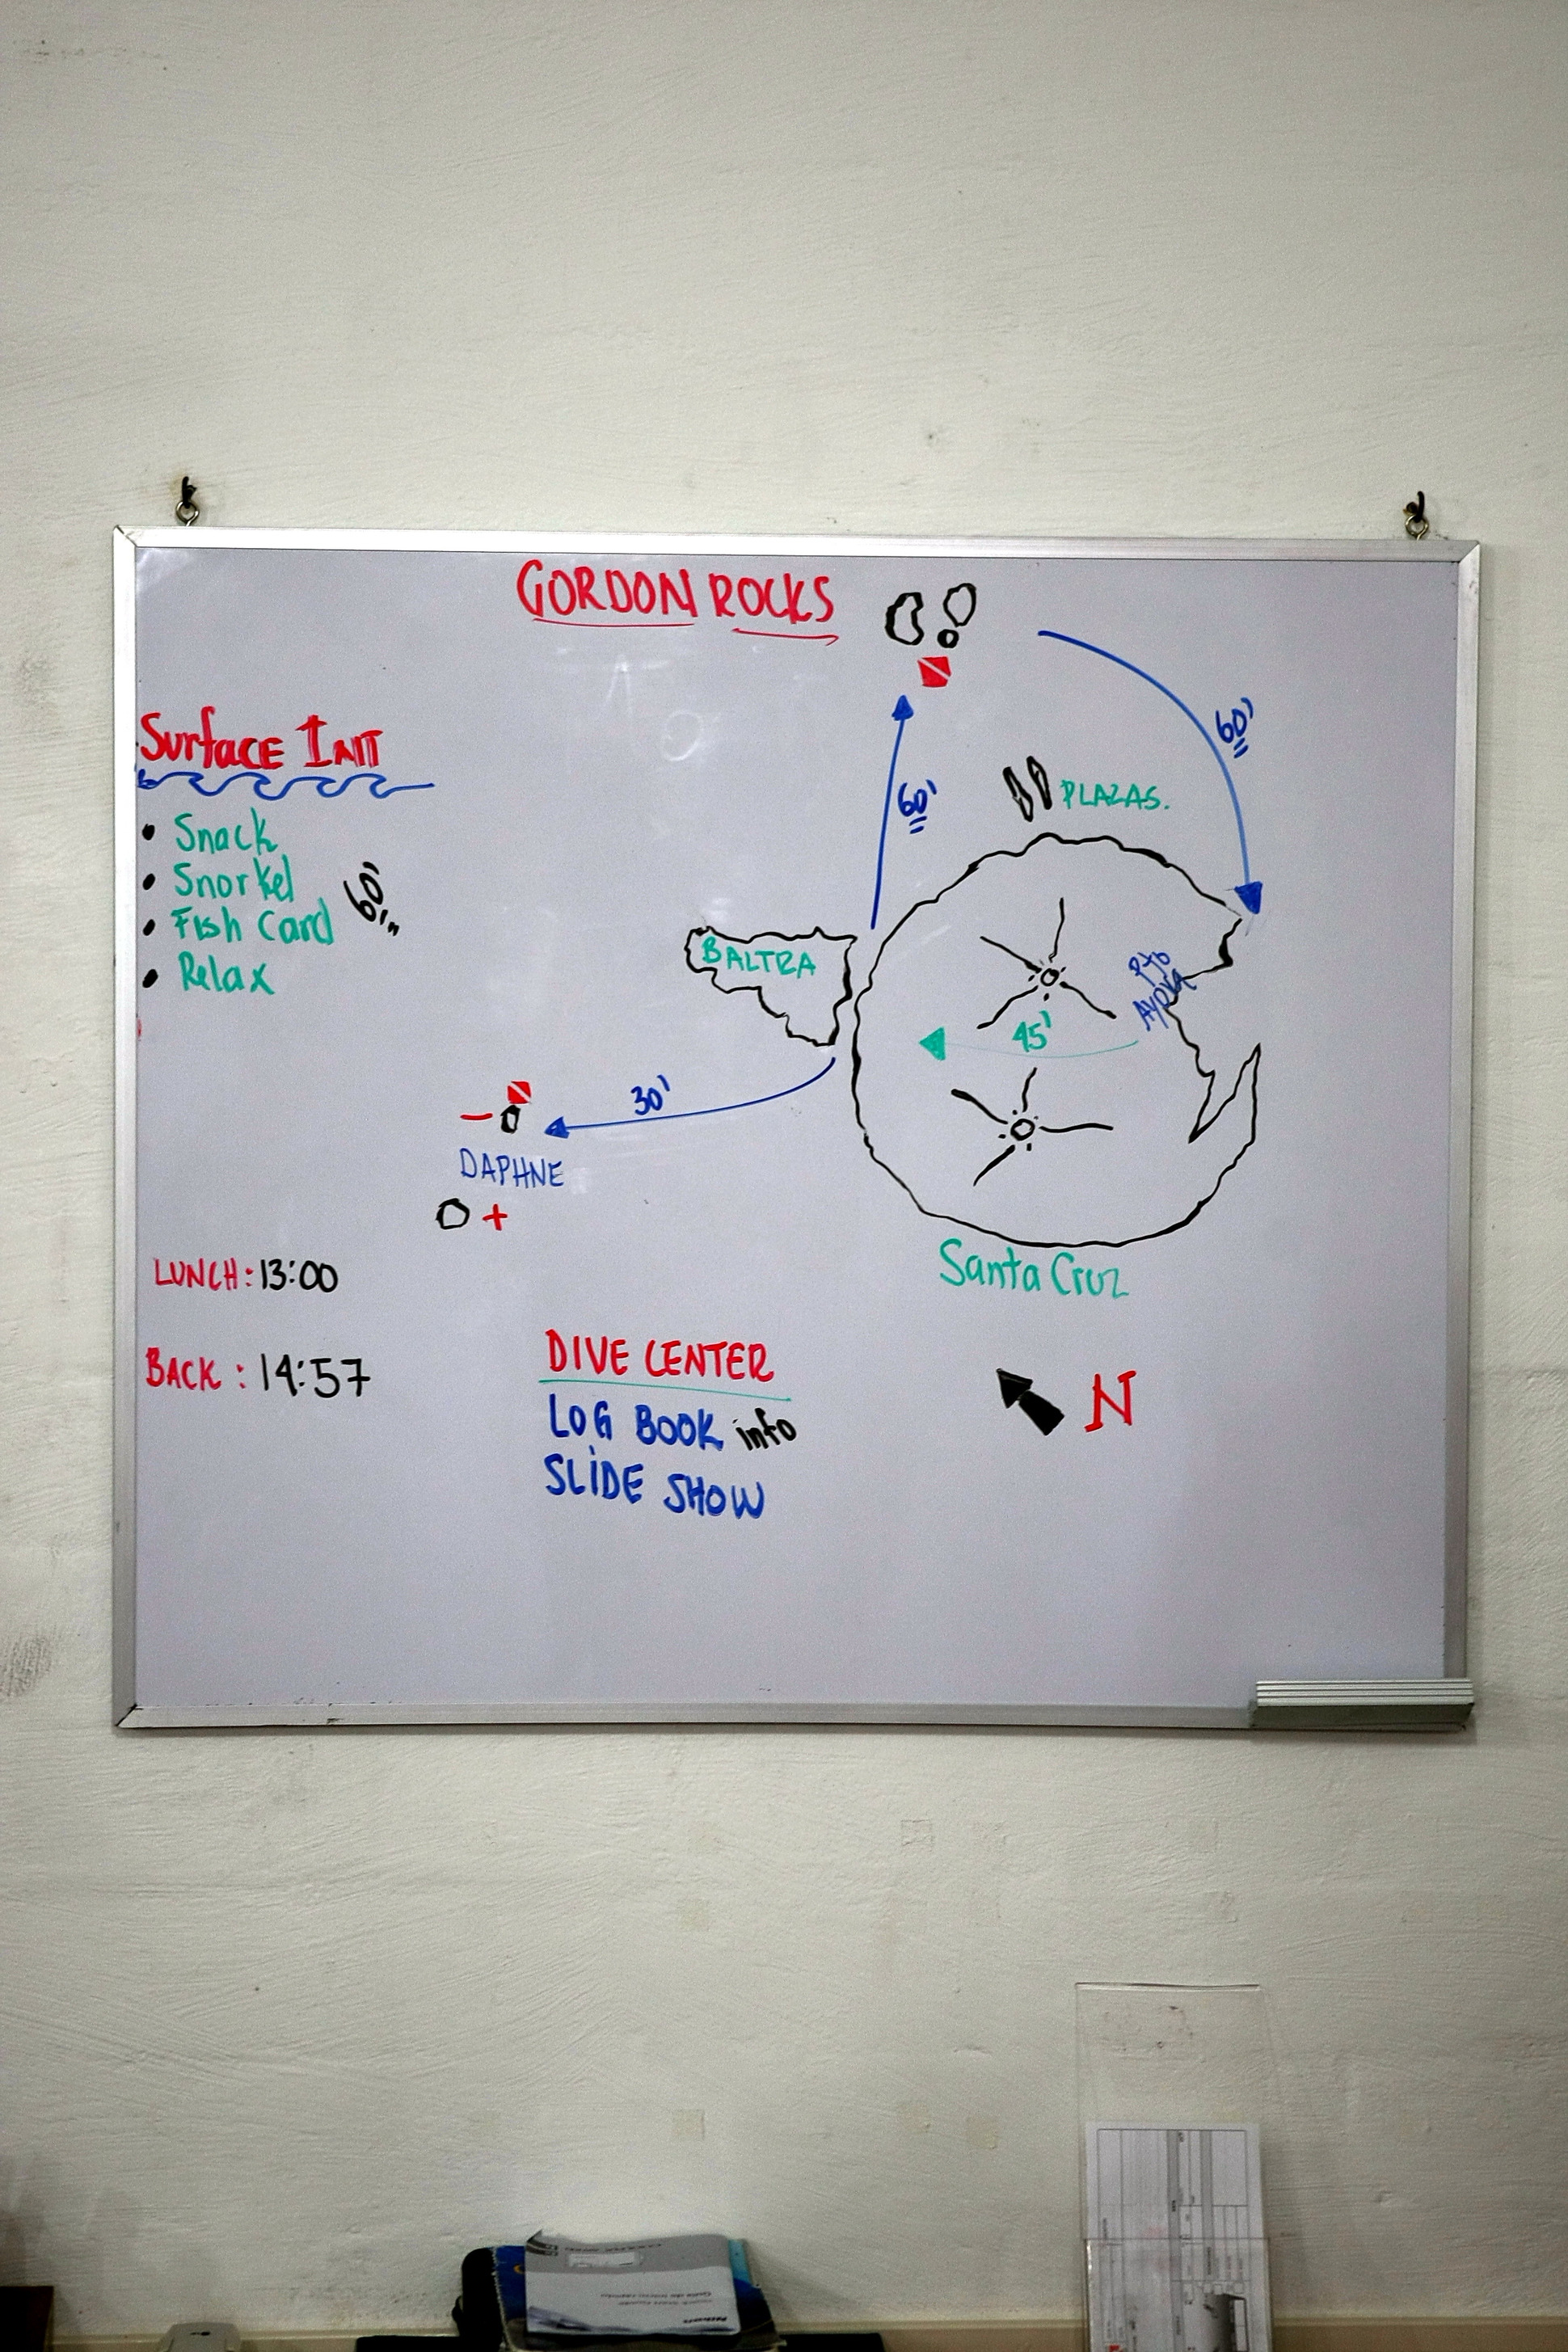 GORDON ROCKS
Surface Int
• Snack
• Snorkel
• Fish Card
• Relax
60'
60'
60'
PLAZAS.
BALTRA
Pto
Ayora
45'
30'
–
DAPHNE
+
Santa Cruz
LUNCH: 13:00
BACK: 14:57
DIVE CENTER
LOG BOOK info
SLIDE SHOW
N
Nikon